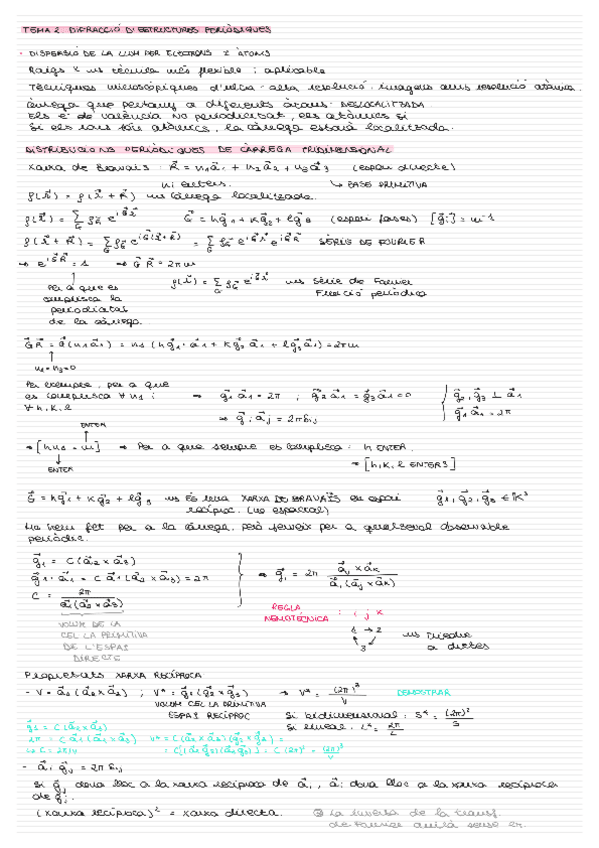 TEMA 2. DIFRACCIÓ D'ESTRUCTURES PERIÒDIQUES
· DISPERSIÓ DE LA LLUM PER ELECTRONS I ÀTOMS
Raigs X → tècnica més flexible i aplicable
Tècniques microscòpiques d'ultra-alta resolució. Imatges amb resolució atòmica.
Càrrega que pertany a diferents àtoms: DESLOCALITZADA
Els e⁻ de valència no periodicitat, els atòmics sí
Si els ions són atòmics, la càrrega estarà localitzada.
DISTRIBUCIONS PERIÒDIQUES DE CÀRREGA TRIDIMENSIONAL
Xarxa de Bravais : R⃗ = n₁a⃗₁ + n₂a⃗₂ + n₃a⃗₃ (espai directe)
ni enters. ↳ BASE PRIMITIVA
ρ(r⃗) = ρ(r⃗ + R⃗) càrrega localitzada.
ρ(r⃗) = Σ_G ρ_G e^{iG⃗r⃗} G⃗ = hg⃗₁ + kg⃗₂ + lg⃗₃ (espai fases) [g⃗i] = m⁻¹
ρ(r⃗ + R⃗) = Σ_G ρ_G e^{iG⃗(r⃗+R⃗)} = Σ_G ρ_G e^{iG⃗r⃗} e^{iG⃗R⃗} SÈRIE DE FOURIER
→ e^{iG⃗R⃗} = 1 → G⃗R⃗ = 2πm
Per a que es complisca la periodicitat de la càrrega.
ρ(r⃗) = Σ_G ρ_G e^{iG⃗r⃗} → Sèrie de Fourier
Funció periòdica
G⃗R⃗ = G⃗(n₁a⃗₁) = n₁ (hg⃗₁·a⃗₁ + kg⃗₂·a⃗₁ + lg⃗₃a⃗₁) = 2πm
n₂=n₃=0
Per exemple, per a que
es complisca ∀n₁ i ⇒ g⃗₁a⃗₁ = 2π ; g⃗₂a⃗₁ = g⃗₃a⃗₁ = 0 { g⃗₂, g⃗₃ ⊥ a⃗₁
∀h, k, l g⃗₁a⃗₁ = 2π
→ g⃗i a⃗j = 2πδij
ENTER
→ [hn₁ = m] → Per a que sempre es complisca : h ENTER.
ENTER → [h, k, l ENTERS]
G⃗ = hg⃗₁ + kg⃗₂ + lg⃗₃ → És una XARXA DE BRAVAIS en espai g⃗₁, g⃗₂, g⃗₃ ∈ ℝ³
recíproc. (no espacial)
Ho hem fet per a la càrrega, però serveix per a qualsevol observable
periòdic.
g⃗₁ = C(a⃗₂ × a⃗₃)
g⃗₁·a⃗₁ = C a⃗₁(a⃗₂ × a⃗₃) = 2π
C = 2π / a⃗₁(a⃗₂ × a⃗₃)
⇒ g⃗i = 2π a⃗j × a⃗k / a⃗i(a⃗j × a⃗k)
VOLUM DE LA
CEL·LA PRIMITIVA
DE L'ESPAI
DIRECTE
REGLA
NEMOTÈCNICA : i j k
1 → 2
3
a dretes
Propietats XARXA RECÍPROCA
- V = a⃗₁(a⃗₂ × a⃗₃) ; V* = g⃗₁(g⃗₂ × g⃗₃) → V* = (2π)³ / V DEMOSTRAR
VOLUM CEL·LA PRIMITIVA
ESPAI RECÍPROC
Si bidimensional : S* = (2π)² / S
Si lineal : L* = 2π / L
g⃗₁ = C(a⃗₂ × a⃗₃)
2π = C a⃗₁(a⃗₂ × a⃗₃)
↳ C = 2π/V
- a⃗i g⃗j = 2πδij
Si g⃗j dona lloc a la xarxa recíproca de a⃗i, a⃗i dona lloc a la xarxa recíproca
de g⃗j.
(xarxa recíproca)² = xarxa directa.
La inversa de la transf.
de Fourier